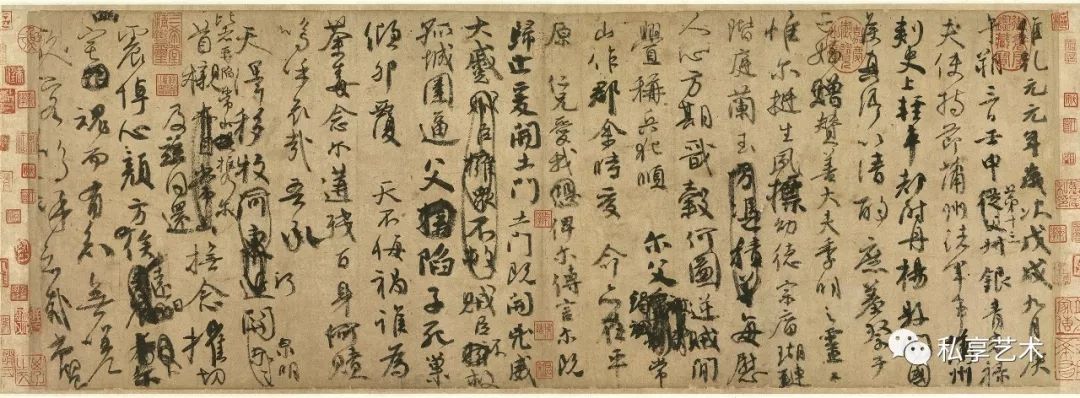 維乾元元年歲次戊戌九月庚
午朔三日壬申第十三從父叔銀青光祿
夫使持節蒲州諸軍事蒲州
刺史上輕車都尉丹楊縣開國
侯真卿以清酌庶羞祭于
亡姪贈贊善大夫季明之靈曰
惟爾挺生夙標幼德宗廟瑚璉
階庭蘭玉方憑積善每慰
人心方期戩穀何圖逆賊閒
釁稱兵犯順爾父竭誠常
山作郡余時受命亦在平
原仁兄愛我俾爾傳言爾既
歸止爰開土門土門既開凶威
大蹙賊臣擁眾不救賊臣不救
孤城圍逼父擒陷子死巢
傾卵覆天不悔禍誰為
荼毒念爾遘殘百身何贖
嗚乎哀哉吾承
天澤移牧河東近河關泉明
比者再陷常山攜爾
首櫬及茲同還撫念摧切
震悼心顏方俟遠日
宅魂而有知無嗟
久客嗚呼哀哉尚饗
私享艺术